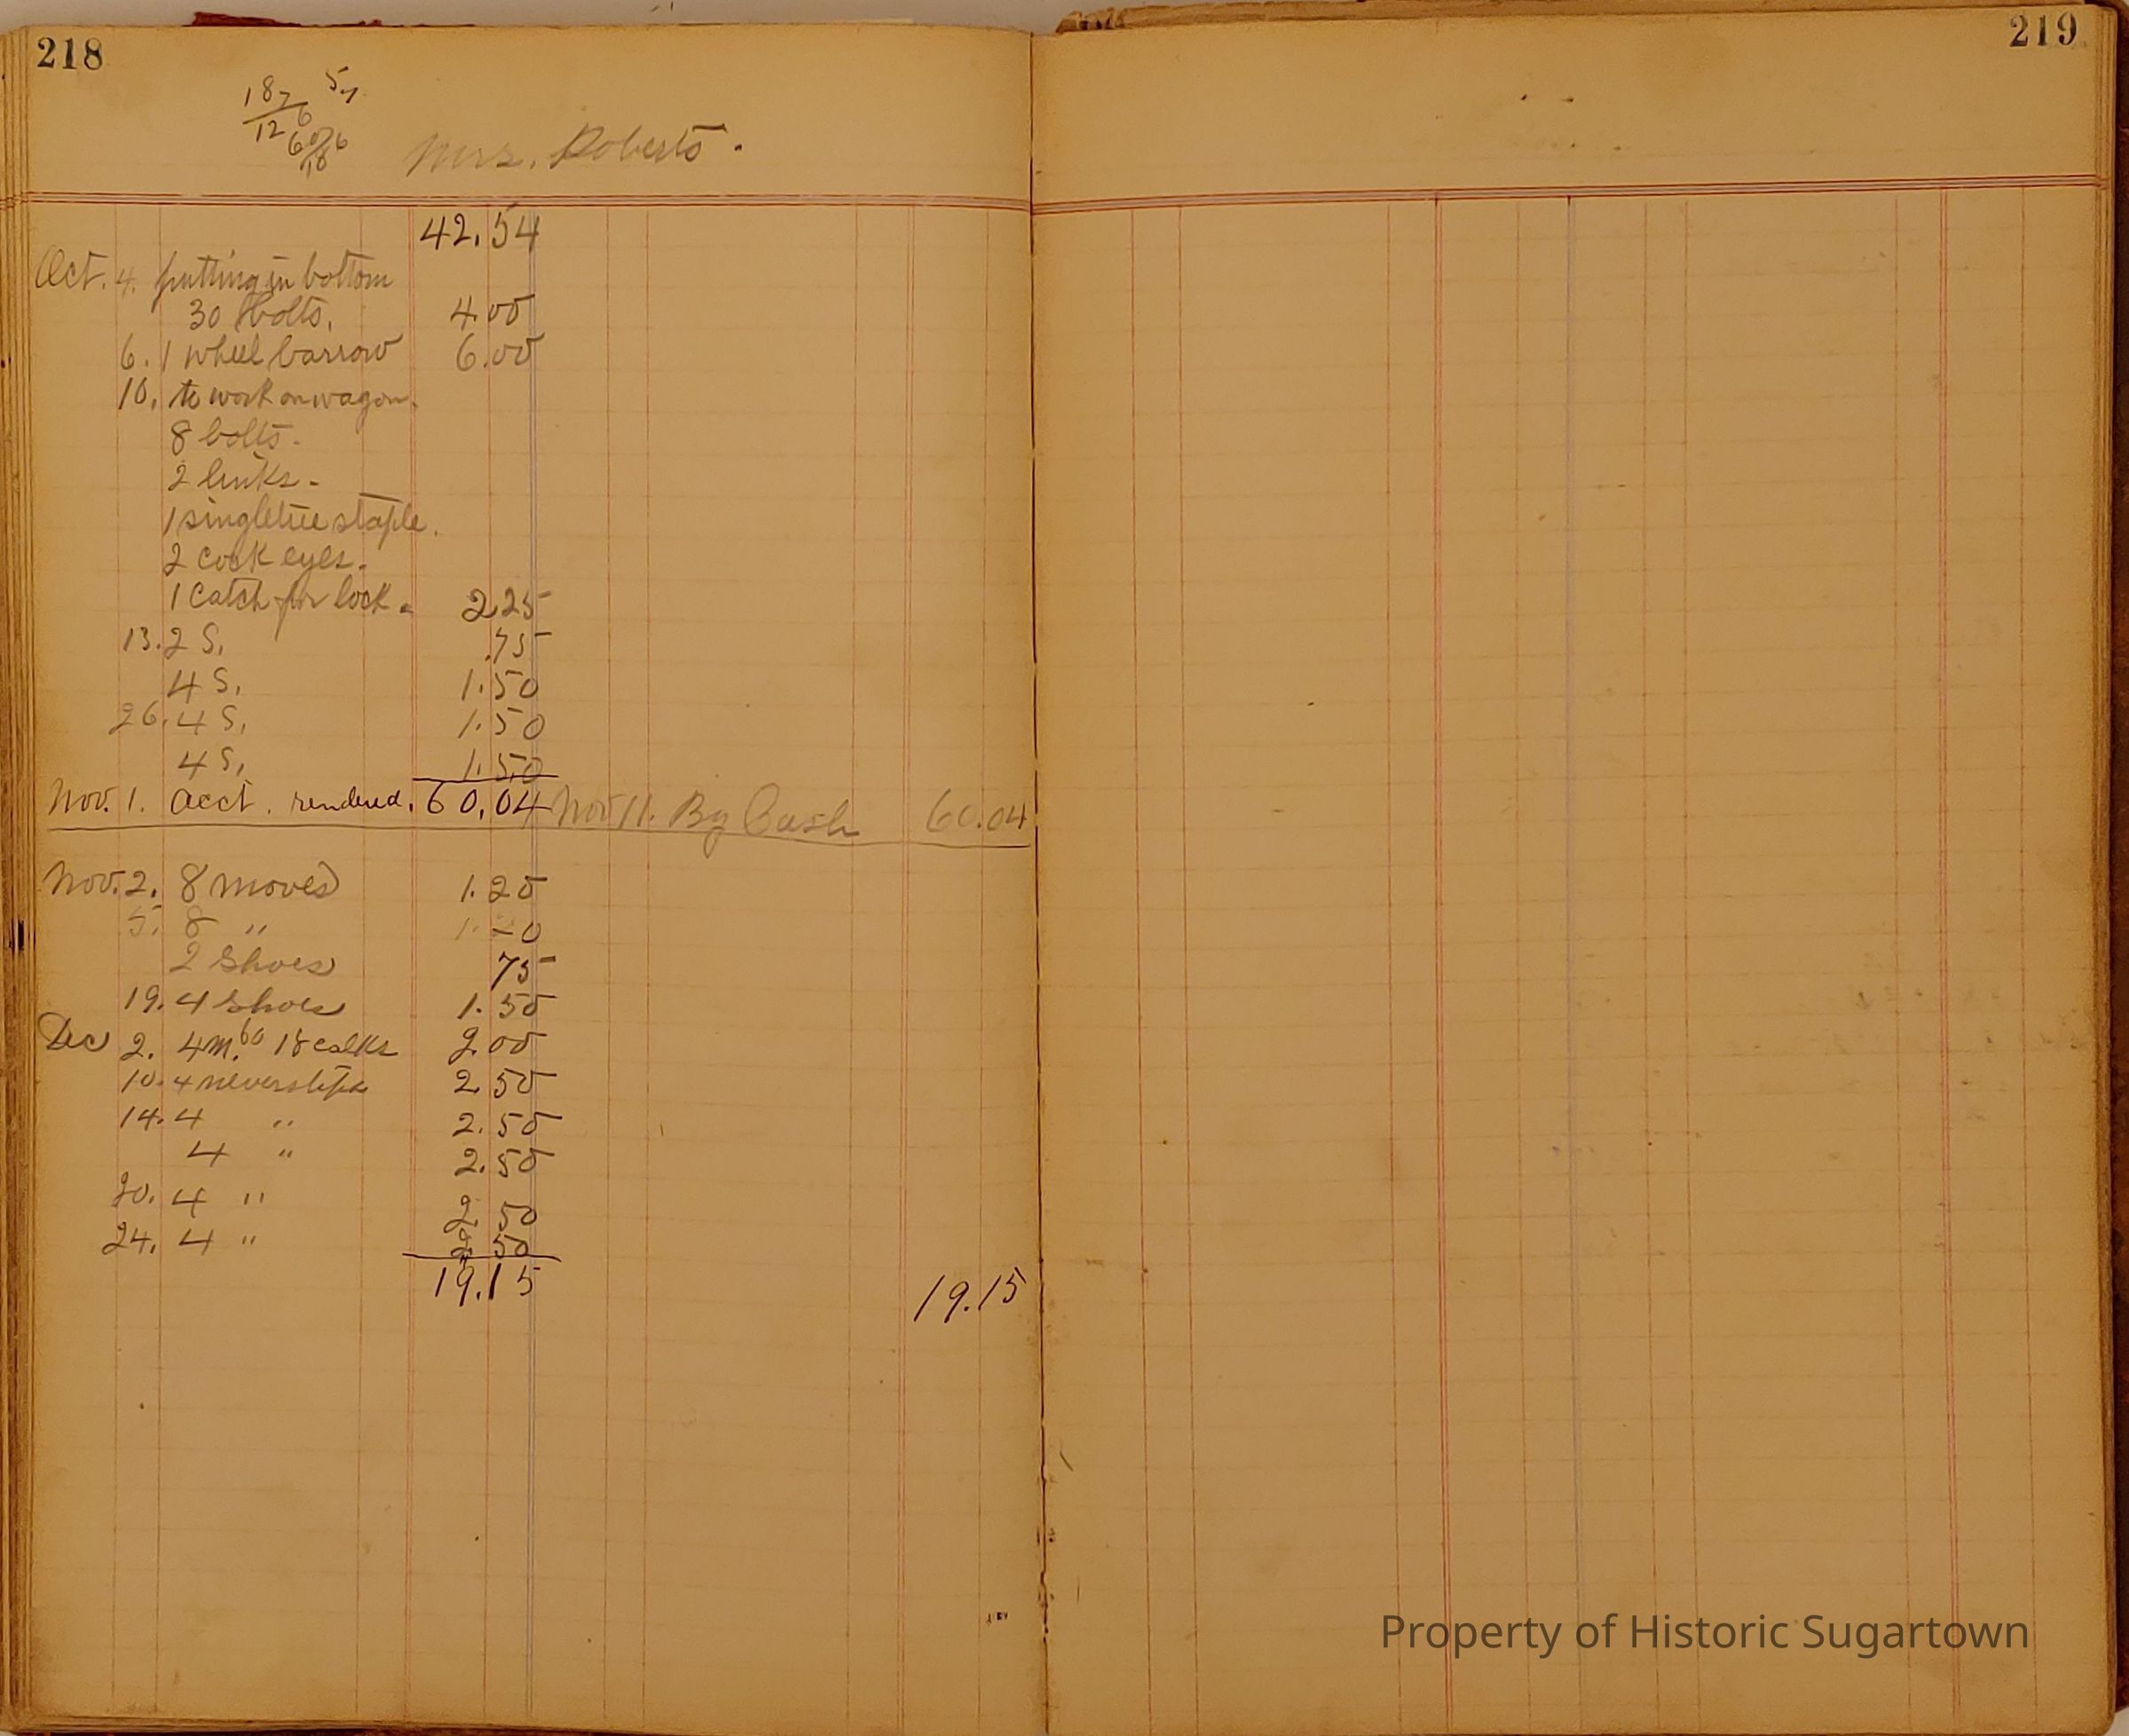 218
219
187
5
12 6
Mrs. Roberts.
42.54
Oct. 4. putting in bottom
30 bolts. 4.00
6. 1 wheel barrow 6.00
10. to work on wagon.
8 bolts.
2 links.
1 singletree staple.
2 cock eyes.
1 catch for lock. 2.25
13. 2 S. .75
4 S. 1.50
26. 4 S. 1.50
4 S. 1.50
Nov. 1. acct. rendered. 60.04 Nov 11. By Cash 60.04
Nov. 2. 8 moves 1.20
5. 8 " 1.20
2 Shoes 75
19. 4 Shoes 1.50
Dec 2. 4 m. 60 18 calks 2.00
10. 4 neverslips 2.50
14. 4 " 2.50
4 " 2.50
20. 4 " 2 50
24. 4 " 2. 50
19.15 19.15
Property of Historic Sugartown